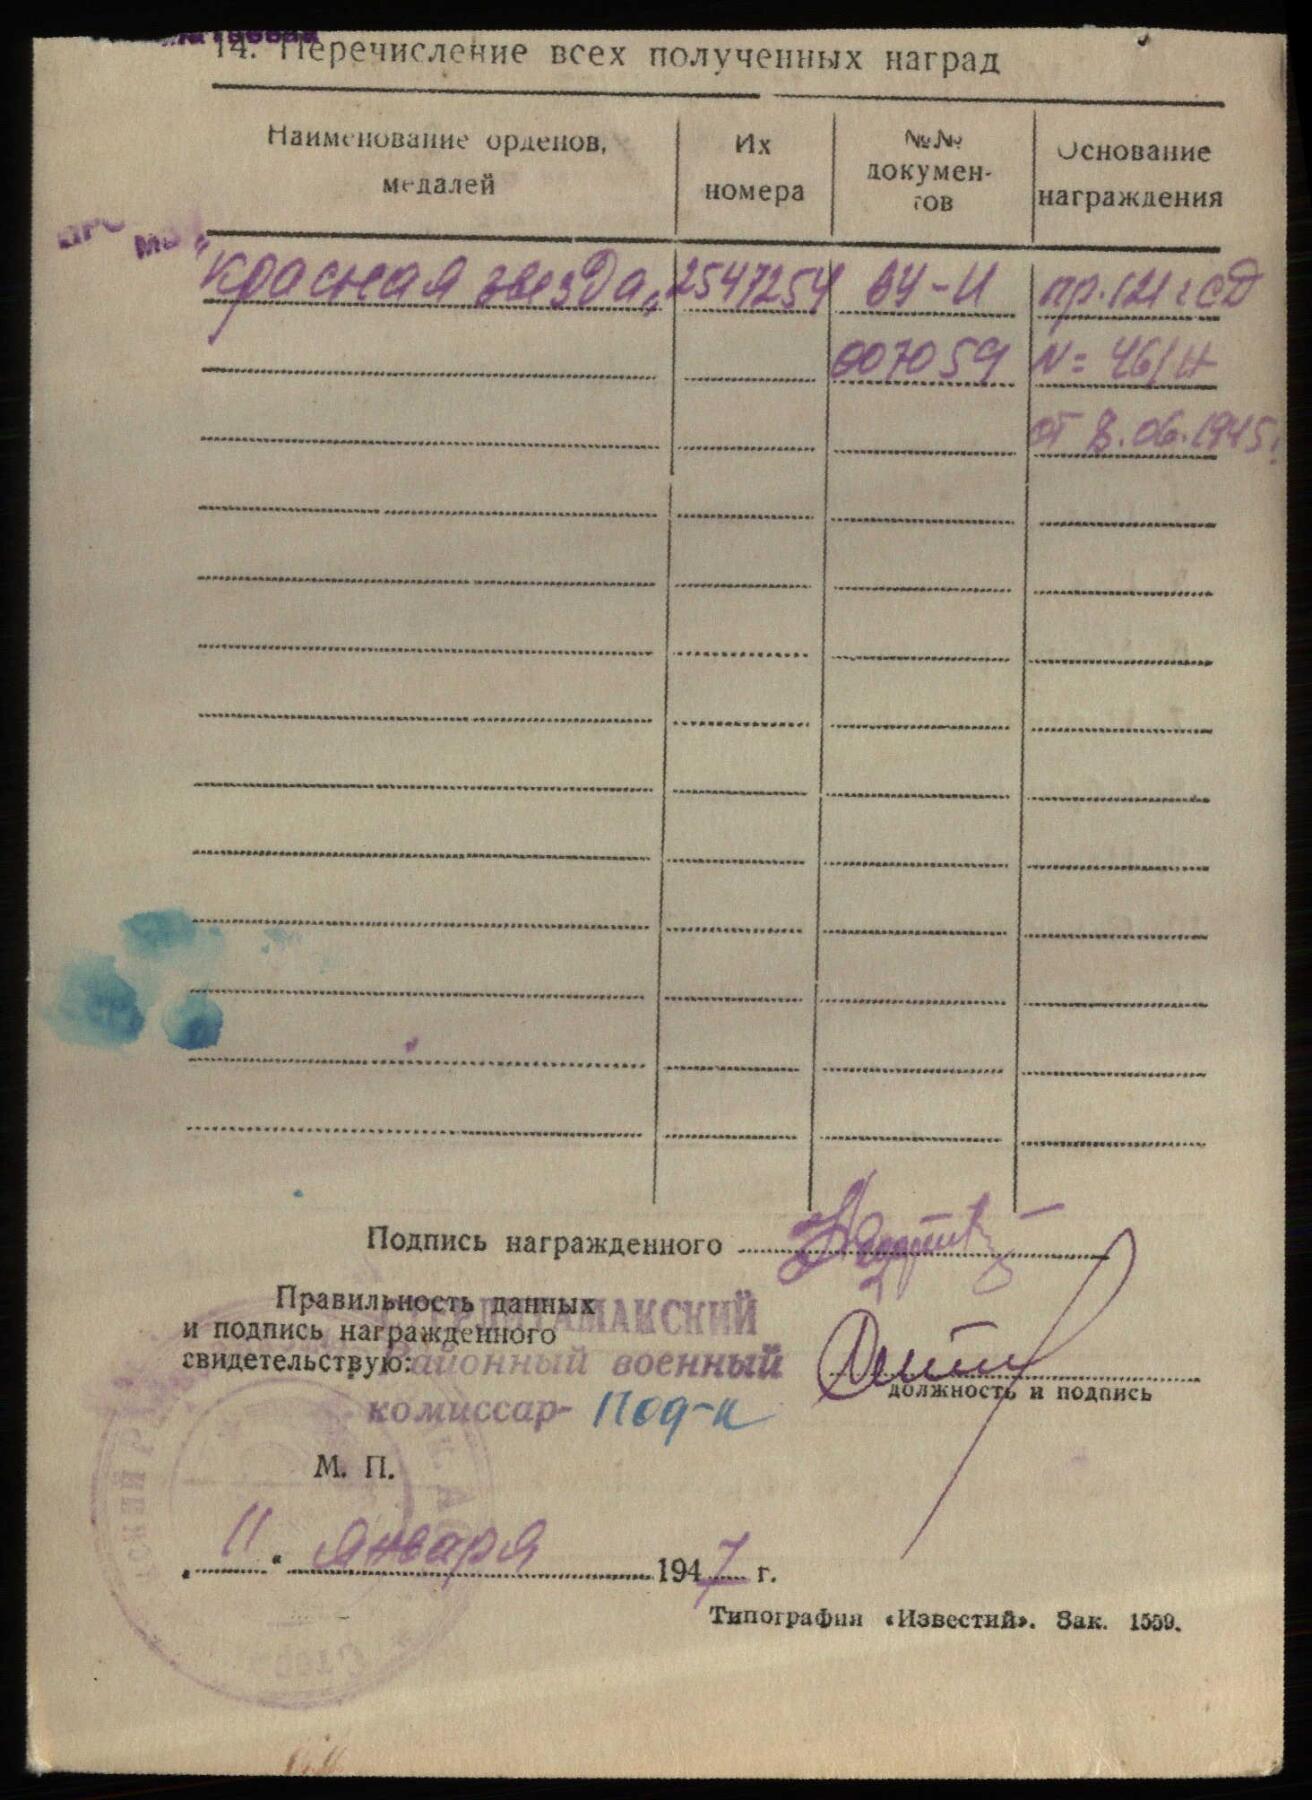 14. Перечисление всех полученных наград
Наименование орденов, медалей
Их номера
№№ документов
Основание награждения
"Красная звезда" 2547254 ВУ-И пр. 121 г СД
007059 N= 46/н
от 8.06.1945г.
Подпись награжденного
Правильность данных
и подпись награжденного
свидетельствую:
СТЕРЛИТАМАКСКИЙ
районный военный
комиссар- Под-к
должность и подпись
М. П.
"11" января 1947 г.
Типография «Известий». Зак. 1559.